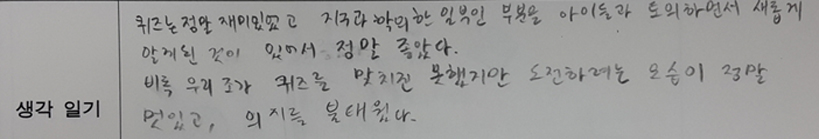 퀴즈는 정말 재미있었고 지구과학의 한 일부인 부분을 아이들과 토의하면서 새롭게
알게된 것이 있어서 정말 좋았다.
비록 우리 조가 퀴즈를 맞치진 못했지만 도전하려는 모습이 정말
생각 일기
멋있고, 의지를 불태웠다.